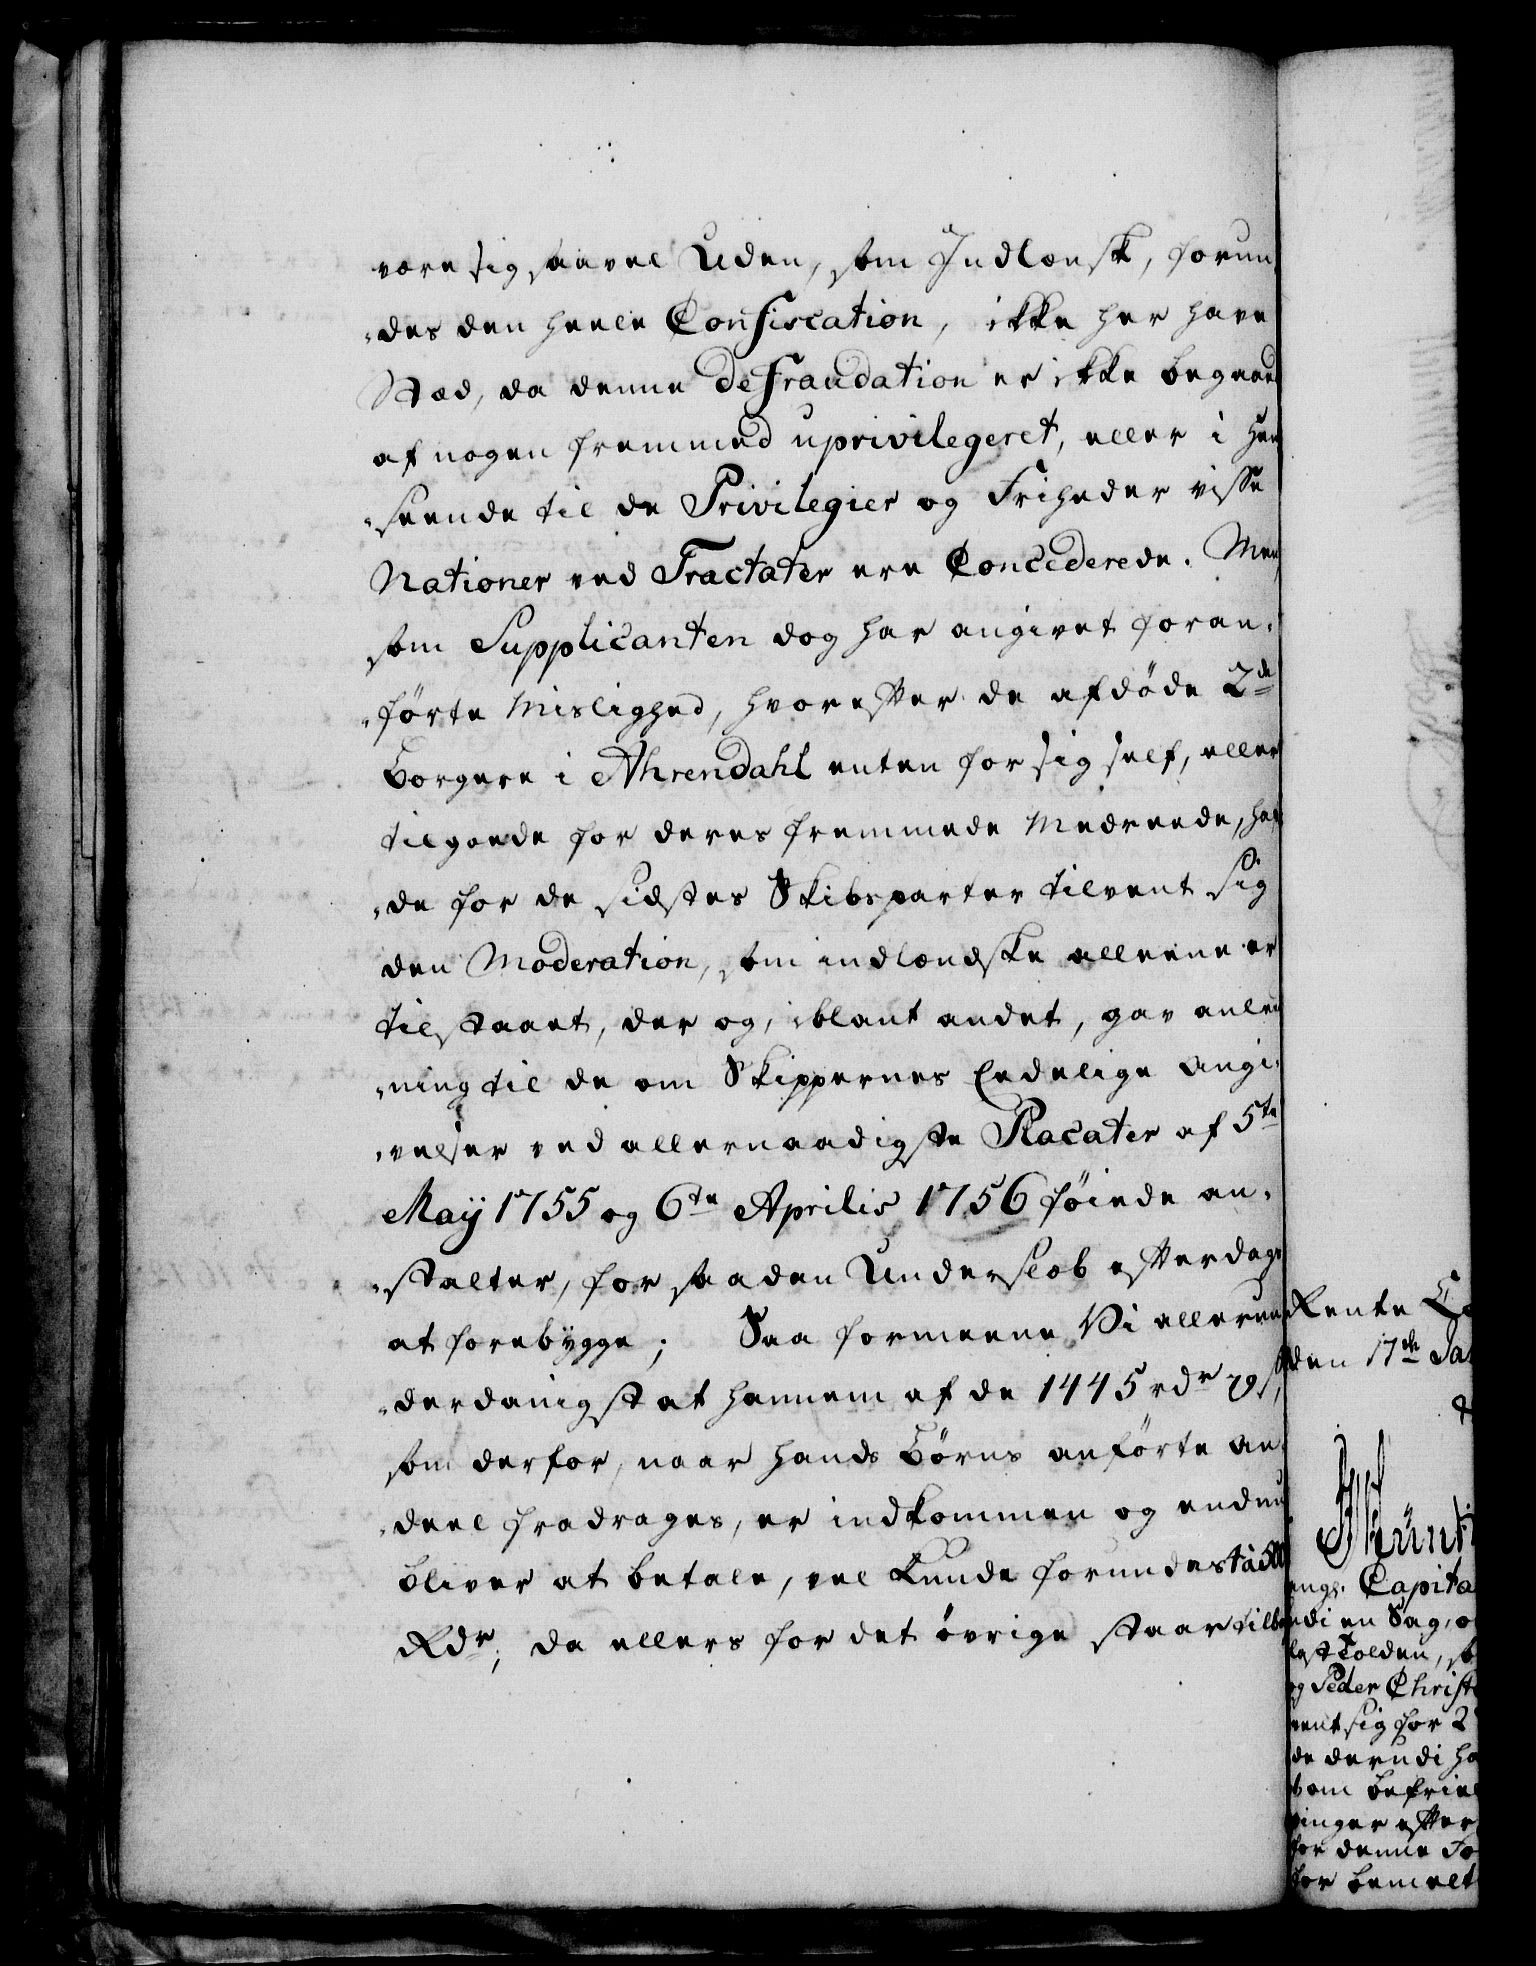 være sig saavel Uden, som Indlænsk, forun
„des den heele Confiscation, ikke her have
Stæd, da denne defraudation er ikke begaaed
af nogen fremmed uprivilegeret, eller i Hen
„seende til de Privilegier og Friheder visse
Nationer ved Tractater ere Concederede. Men
som Supplicanten dog har angivet foran„
„förte Mislighed, hvorefter de afdöde 2de
Borgere i Ahrendahl enten for sig self, eller
tilgoede for deres fremmede Medreede, haf
„de for de sidstes Skibsparter tilvent sig
den Moderation, som indlændske alleene er
tilstaaet, der og, iblant andet, gav anled
„ning til de om Skippernes Eedelige Angi„
„velser ved allernaadigste Placater af 5te
Maij 1755 og 6te Aprilis 1756 föiede an„
„stalter, for saadan Underslæb efterdags
at forebygge; Saa formeene Vi allerun
„derdanigst at hannem af de 1445 rdr 79 s,
som derfor, naar hands Börns anförte An„
„deel fradrages, er indkommen og endnu
bliver at betale, vel kunde forundes til 500
Rdr, da ellers for det övrige staar tilba
Rente
den 17de Ja
Capita
udi en Sag, o
Tolden, s
og Peder Christ
vent sig for 2
de derudi ha
om befrie
ringer efter
for denne Fo
for bemelt